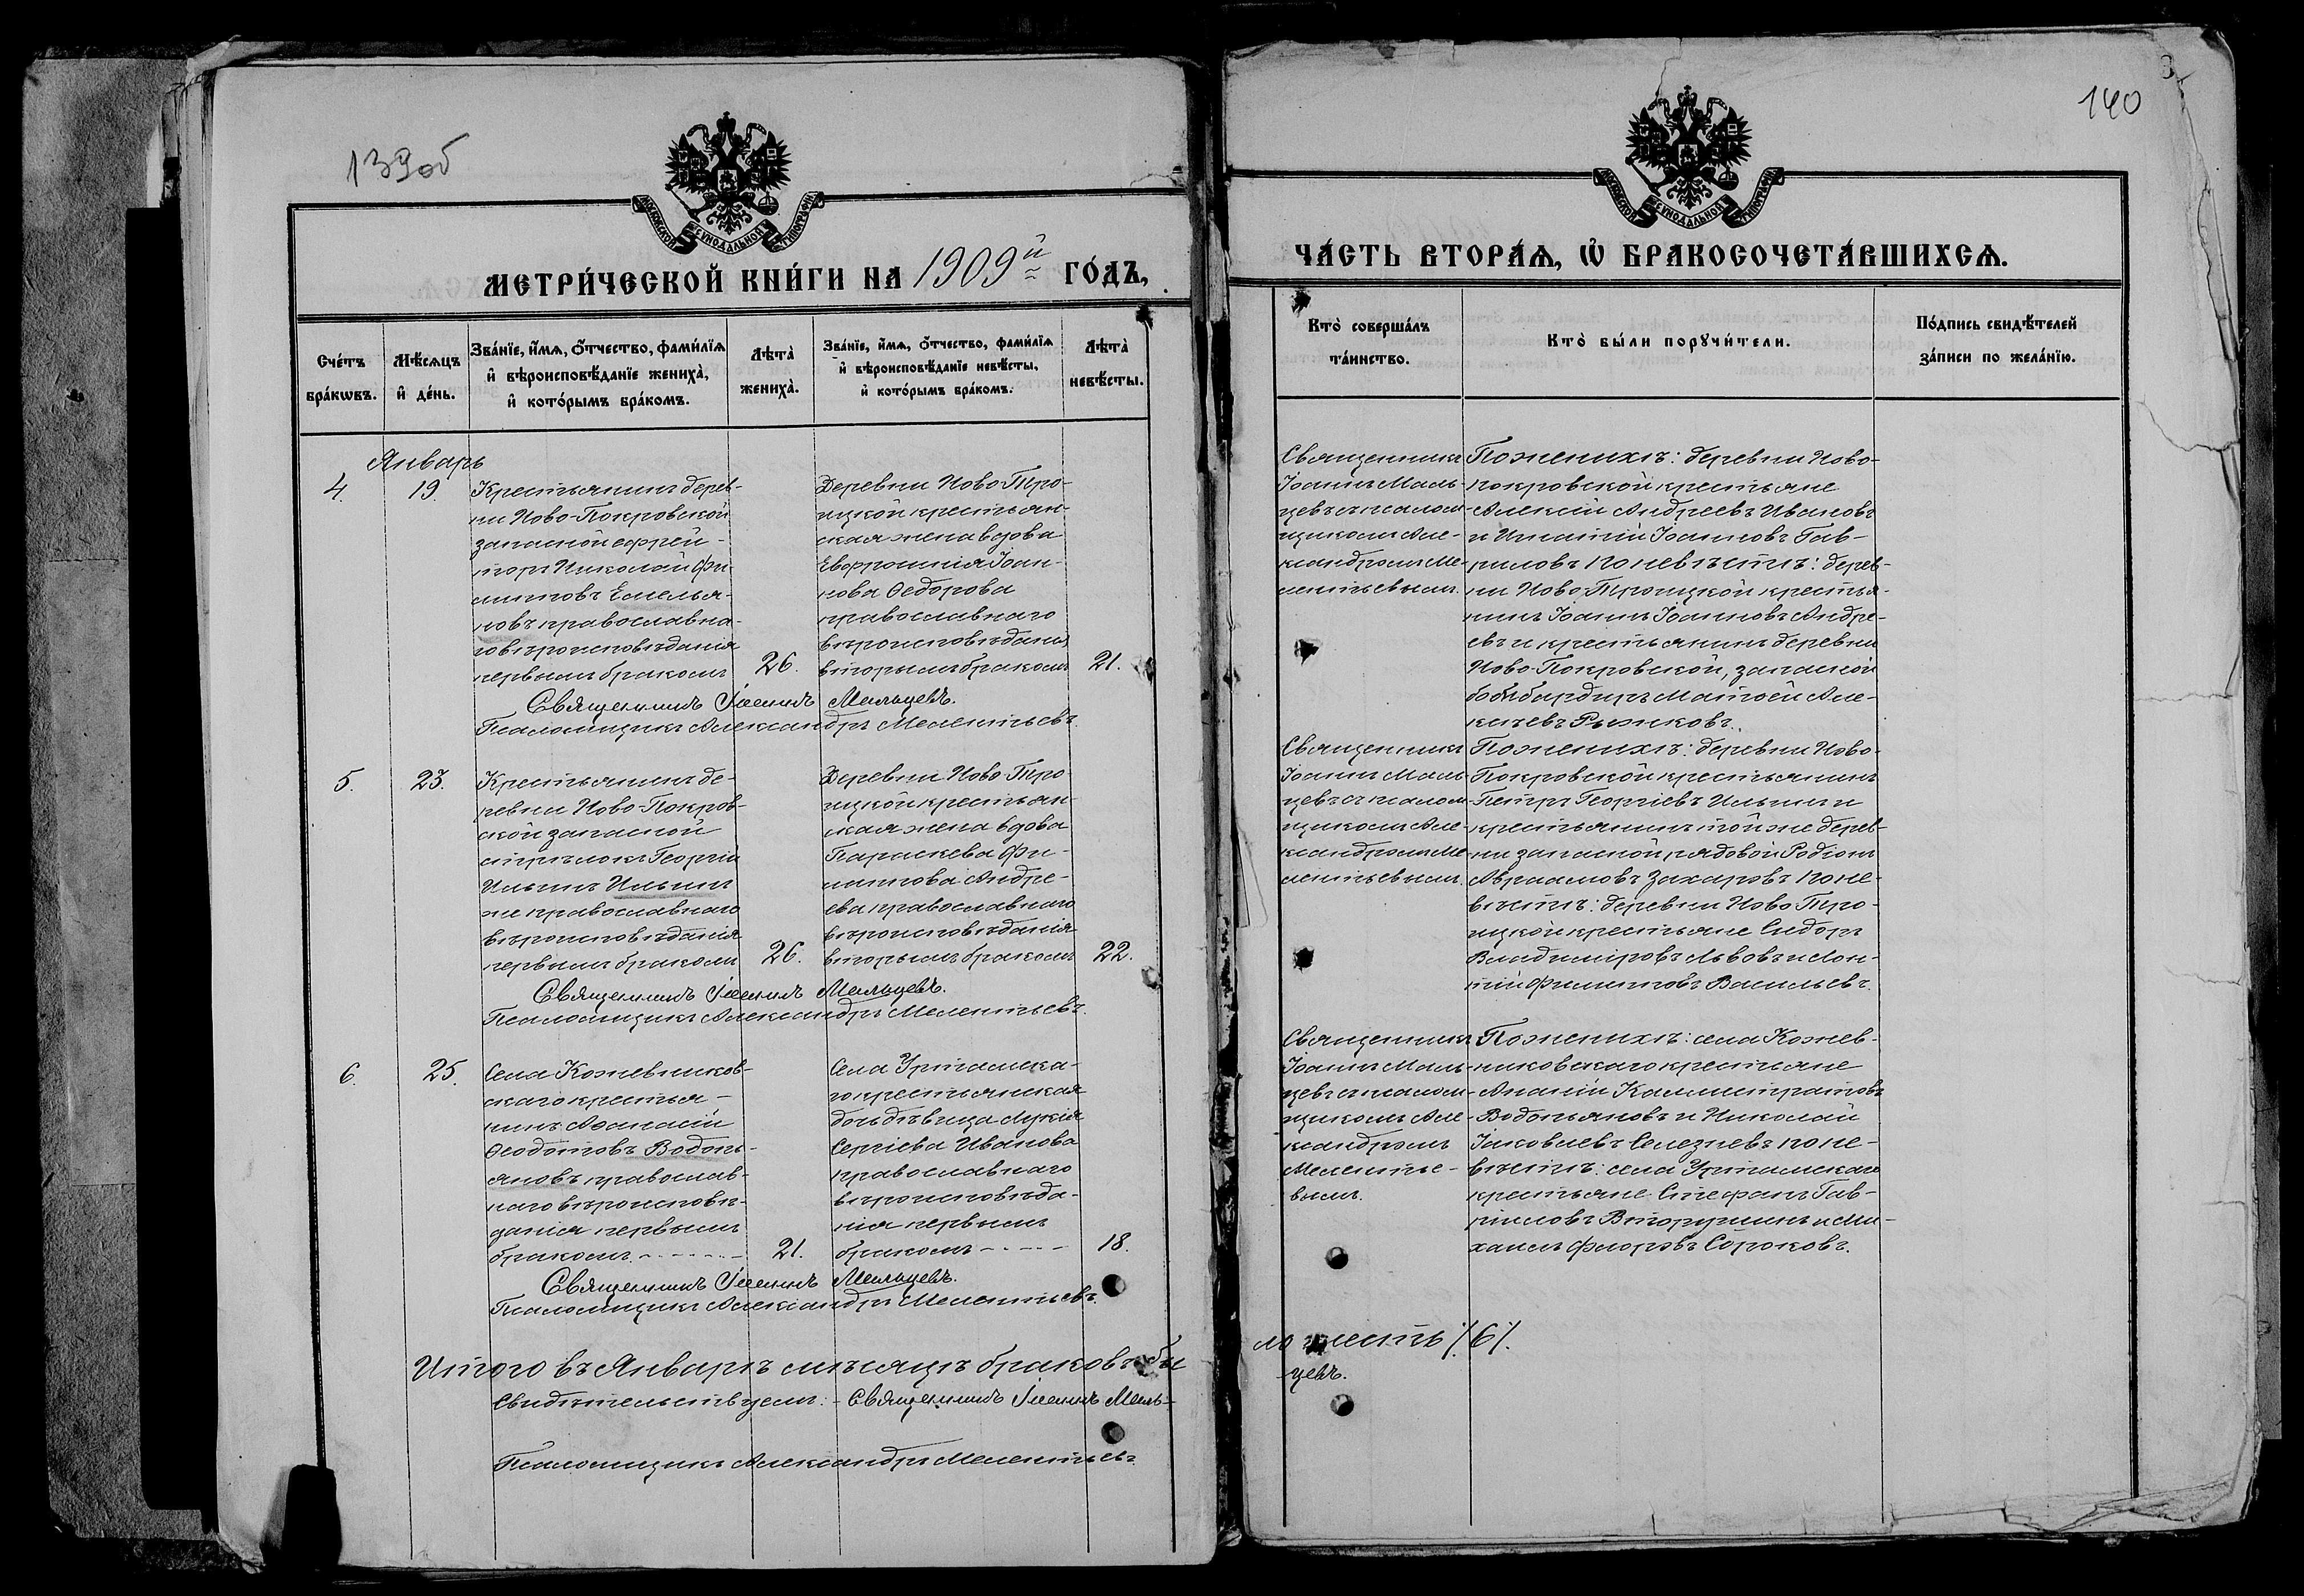 139об
МОСКОВСКОЙ СѴНОДАЛЬНОЙ ТИПОГРАФІИ
МЕТРИ́ЧЕСКОЙ КНИ́ГИ НА 1909й ГО́ДЪ,
Сче́тъ бра́кѡвъ.
Мѣ́сяцъ и҆ де́нь.
Зва́нїе, и҆́мѧ, ѻ҆́тчество, фами́лїѧ
и҆ вѣроисповѣ́данїе жениха̀,
и҆ кото́рымъ бра́комъ.
Лѣта̀ жениха̀.
Зва́нїе, и҆́мѧ, ѻ҆́тчество, фами́лїѧ
и҆ вѣроисповѣ́данїе невѣ́сты,
и҆ кото́рымъ бра́комъ.
Лѣта̀ невѣ́сты.
Январь
4.
19.
Крестьянинъ дерев-
ни Ново-Покровской
запасной ефрей-
торъ Николай Фи-
липповъ Емелья-
новъ православна-
го вѣроисповѣданія
первымъ бракомъ
26.
Деревни Ново-Тро-
ицкой крестьян-
ская жена вдова
Евфросинія Іоан-
нова Ѳедорова
православнаго
вѣроисповѣданія
вторымъ бракомъ
21.
Священникъ Іоаннъ Мальцевъ.
Псаломщикъ Александръ Мелентьевъ.
5.
23.
Крестьянинъ де-
ревни Ново-Покров-
ской запасной
стрѣлокъ Георгій
Ильинъ Ильинъ
же православнаго
вѣроисповѣданія
первымъ бракомъ
26.
Деревни Ново-Тро-
ицкой крестьян-
ская жена вдова
Параскева Фи-
липпова Андре-
ева православнаго
вѣроисповѣданія
вторымъ бракомъ
22.
Священникъ Іоаннъ Мальцевъ.
Псаломщикъ Александръ Мелентьевъ.
6.
25.
Села Кожевников-
скаго крестья-
нинъ Аѳанасій
Ѳеодотовъ Водопь-
яновъ православ-
наго вѣроисповѣ-
данія первымъ
бракомъ
21.
Села Уртамска-
го крестьянская
дочь дѣвица Лукія
Сергіева Иванова
православнаго
вѣроисповѣда-
нія первымъ
бракомъ
18.
Священникъ Іоаннъ Мальцевъ.
Псаломщикъ Александръ Мелентьевъ.
Итого въ Январѣ мѣсяцѣ браковъ бы
Свидѣтельствуемъ: Священникъ Іоаннъ Маль-
Псаломщикъ Александръ Мелентьевъ.
140
МОСКОВСКОЙ СѴНОДАЛЬНОЙ ТИПОГРАФІИ
ЧА́СТЬ ВТОРА́Ѧ, Ѽ БРАКОСОЧЕТА́ВШИХСѦ.
Кто̀ соверша́лъ
та́инство.
Кто̀ бы́ли порꙋчи́тели.
По́дпись свидѣ́телей
за́писи по жела́нїю.
Священникъ
Іоаннъ Маль-
цевъ съ псалом-
щикомъ Але-
ксандромъ Ме-
лентьевымъ.
По женихѣ: деревни Ново-
покровской крестьяне
Алексій Андреевъ Ивановъ
и Игнатій Іоанновъ Гав-
риловъ по невѣстѣ: дерев-
ни Ново-Троицкой крестья-
нинъ Іоаннъ Іоанновъ Андре-
евъ и крестьянинъ деревни
Ново-Покровской, запасной
бомбардиръ Матѳей Але-
ксѣевъ Рыжковъ.
Священникъ
Іоаннъ Маль-
цевъ съ псалом-
щикомъ Але-
ксандромъ Ме-
лентьевымъ.
По женихѣ: деревни Ново-
Покровской крестьянинъ
Петръ Георгіевъ Ильинъ и
крестьянинъ той же дерев-
ни запасной рядовой Родіонъ
Авраамовъ Захаровъ по не-
вѣстѣ: деревни Ново-Тро-
ицкой крестьяне Сидоръ
Владиміровъ Львовъ и Лон-
гій Филипповъ Васильевъ.
Священникъ
Іоаннъ Маль-
цевъ съ псалом-
щикомъ Але-
ксандромъ
Мелентье-
вымъ.
По женихѣ: села Кожев-
никовскаго крестьяне
Ананій Каллистратовъ
Водопьяновъ и Николай
Іаковлевъ Селезневъ по не-
вѣстѣ: села Уртамскаго
крестьяне Стефанъ Гав-
риловъ Вторушинъ и Ми-
хаилъ Флоровъ Сороковъ.
ло шесть /6/.
цевъ.